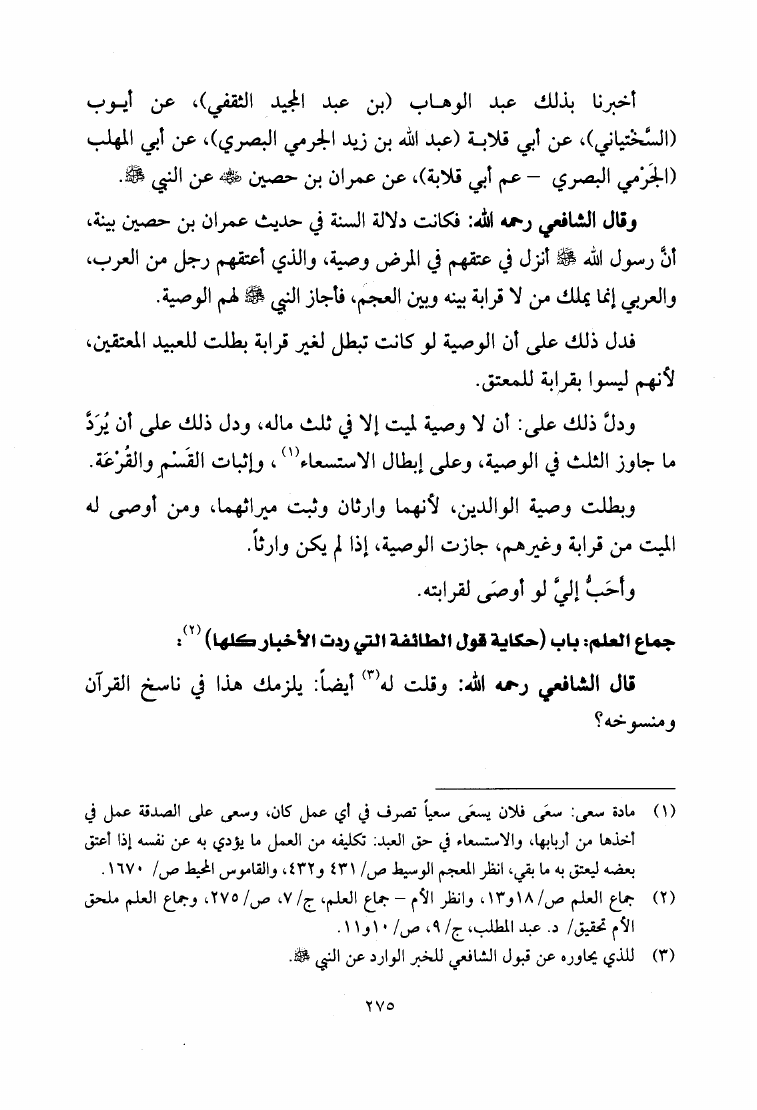 أخبرنا بذلك عبد الوهاب (بن عبد المجيد الثقفي)، عن أيوب
(السَّخْتياني)، عن أبي قلابة (عبد الله بن زيد الجرمي البصري)، عن أبي المهلب
(الجَرْمي البصري – عم أبي قلابة)، عن عمران بن حصين ﷺ عن النبي ﷺ.
وقال الشافعي رحمه الله: فكانت دلالة السنة في حديث عمران بن حصين بينة،
أنَّ رسول الله ﷺ أنزل في عتقهم في المرض وصية، والذي أعتقهم رجل من العرب،
والعربي إنما يملك من لا قرابة بينه وبين العجم، فأجاز النبي ﷺ لهم الوصية.
فدل ذلك على أن الوصية لو كانت تبطل لغير قرابة بطلت للعبيد المعتقين،
لأنهم ليسوا بقرابة للمعتق.
ودلَّ ذلك على: أن لا وصية لميت إلا في ثلث ماله، ودل ذلك على أن يُرَدَّ
ما جاوز الثلث في الوصية، وعلى إبطال الاستسعاء(١)، وإثبات القَسْم والقُرْعَة.
وبطلت وصية الوالدين، لأنهما وارثان وثبت ميراثهما، ومن أوصى له
الميت من قرابة وغيرهم، جازت الوصية، إذا لم يكن وارثاً.
وأحَبُّ إليَّ لو أوصَى لقرابته.
جماع العلم: باب (حكاية قول الطائفة التي ردت الأخبار كلها)(٢):
قال الشافعي رحمه الله: وقلت له(٣) أيضاً: يلزمك هذا في ناسخ القرآن
ومنسوخه؟
(١) مادة سعى: سعَى فلان يسعَى سعياً تصرف في أي عمل كان، وسعى على الصدقة عمل في
أخذها من أربابها، والاستسعاء في حق العبد: تكليفه من العمل ما يؤدي به عن نفسه إذا أعتق
بعضه ليعتق به ما بقي، انظر المعجم الوسيط ص/ ٤٣١ و٤٣٢، والقاموس المحيط ص/ ١٦٧٠.
(٢) جماع العلم ص/ ١٨و١٣، وانظر الأم – جماع العلم، ج/ ٧، ص/ ٢٧٥، وجماع العلم ملحق
الأم تحقيق/ د. عبد المطلب، ج/ ٩، ص/ ١٠و١١.
(٣) للذي يحاوره عن قبول الشافعي للخبر الوارد عن النبي ﷺ.
٢٧٥